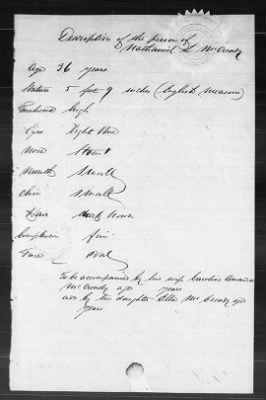 Description of the person of
Nathaniel L McCready
Age 36 years
Stature 5 feet 9 inches (English Measure)
Forehead high
Eyes light blue
Nose
Mouth Small
Chin Small
Hair brown
Complexion fair
Face Oval
To be accompanied by his wife Caroline Amanda
McCready age years
and by his daughter Ellen McCready age
years